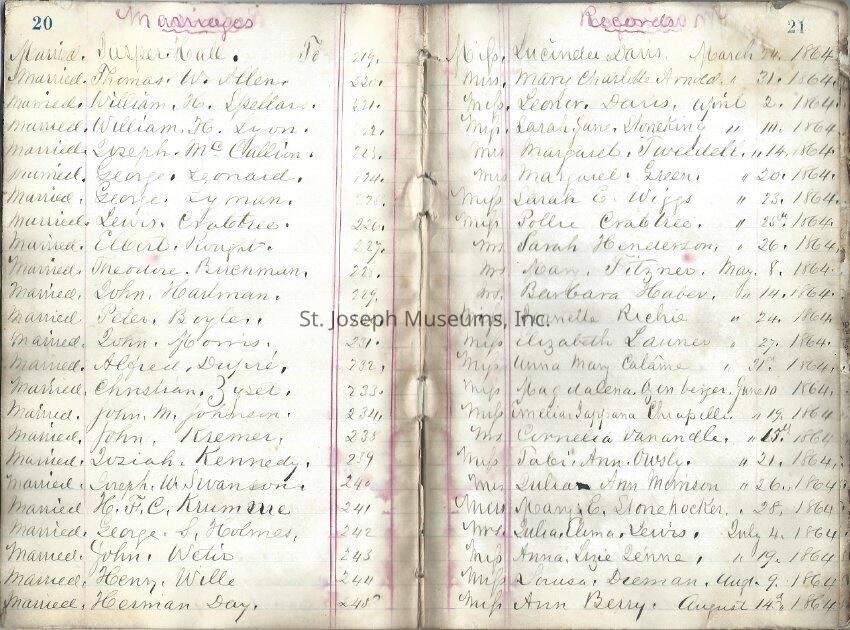 20 Marriages Records 21
Married. Jasper Hall. To 219. Miss. Lucinda Davis. March 24. 1864
Married. Thomas. W. Allen. 220. Miss. Mary Charlotte Arnold. " 31. 1864
Married. William. H. Spellars. 221. Miss. Leoner. Davis, April 2. 1864
Married. William. H. Lyon. 222. Miss Sarah Jane. Stoneking " 10. 1864
Married. Joseph. Mc Callion. 223. Mrs Margaret. Tweddell. " 14. 1864
Married. George. Leonard. 224. Mrs Margaret. Green. " 20. 1864
Married. George. Lyman. 225. Miss Sarah E. Wiggs " 23. 1864
Married. Lewis. Crabtree. 226. Miss Pollie Crabtree. " 25th 1864
Married. Elbert. 227. Mrs Sarah Henderson, " 26. 1864
Married. Theodore. Buchman. 228. Mrs Mary Fitzner. May. 8. 1864
Married. John. Hartman. 229. Mrs. Barbara Huber. " 14. 1864
Married. Peter. Boyle. Richie " 24. 1864
St. Joseph Museums, Inc.
Married. John. Morris. 231. Miss Elizabeth Launer " 27. 1864
Married. Alfred. Dupré. 232. Miss Anna Mary Calame " 31st 1864
Married. Christian. Zyset. 233. Miss Magdalena. June 10 1864
Married. John. M. Johnson. 234. Miss " 19. 1864
Married. John. Kremer. 235 Mrs Cornelia Vanandle. " 15th 1864
Married. Josiah. Kennedy. 239 Miss Tabi. Ann. Owsly. " 21. 1864
Married. Joseph. W. Swanson. 240 Miss Julia Ann Monison " 26. 1864
Married. H. F. C. Krumme 241 Miss Mary. E. Stonehocker. " 28. 1864
Married. George. S. Holmes. 242 Mrs. Julia, Elma. Lewis. July 4. 1864
Married. John. Wetir 243 Miss Anna. Lizie " 19. 1864
Married. Henry. Wille 244 Miss Louisa. Dieman. Aug. 9. 1864
Married. Herman Day. 245 Miss Ann Berry. August 14th 1864